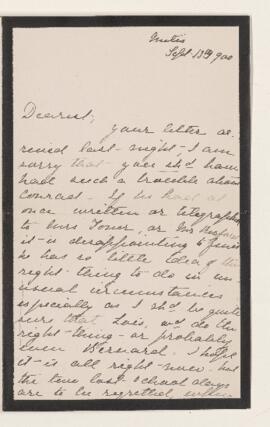 Metis
Sept 13th 900
Dearest,
your letter ar
rived last night - I am
sorry that you shd have
had such a trouble about
Conrad - If he had at
once written or telegraphed
to Mrs or Mr
it is disappointing to find
he has so little idea of the
right thing to do in un
usual circumstances
especially as I shd be quite
sure that Lois, wd do the
right thing - or probably
even Bernard. I hope
it is all right now but
the time lost school always
are to be regretted when